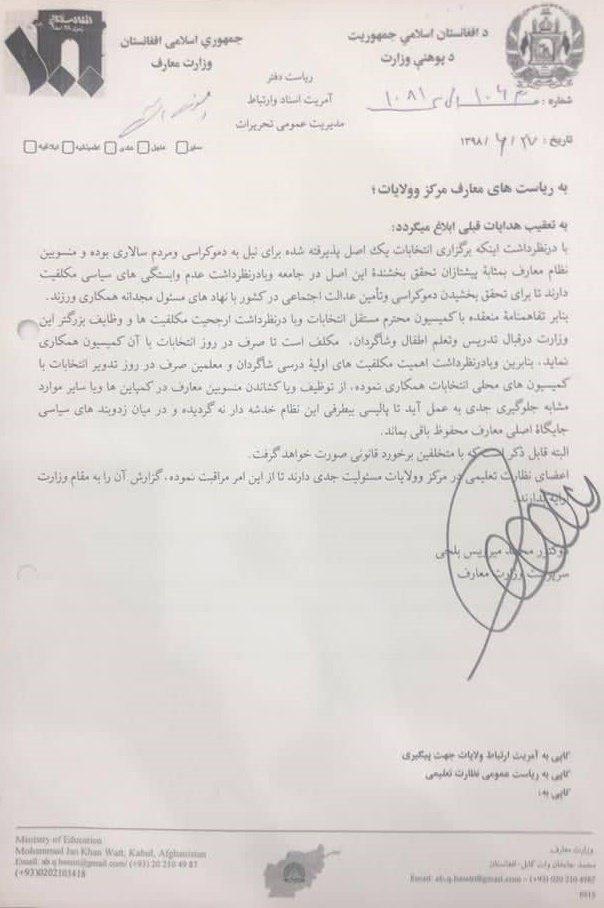 د افغانستان اسلامي جمهوریت
د پوهنې وزارت
جمهوري اسلامی افغانستان
وزارت معارف
ریاست دفتر
آمریت اسناد وارتباط
مدیریت عمومی تحریرات
شماره:
تاریخ: ۲۷ / ۶ / ۱۳۹۸
به ریاست های معارف مرکز وولایات؛
به تعقیب هدایات قبلی ابلاغ میگردد:
با درنظرداشت اینکه برگزاری انتخابات یك اصل پذیرفته شده برای نیل به دموکراسی ومردم سالاری بوده و منسوبین
نظام معارف بمثابۀ پیشتازان تحقق بخشندۀ این اصل در جامعه وبادرنظرداشت عدم وابستگی های سیاسی مکلفیت
دارند تا برای تحقق بخشیدن دموکراسی وتأمین عدالت اجتماعی در کشور با نهاد های مسئول مجدانه همکاری ورزند.
بنابر تفاهمنامۀ منعقده با کمیسیون محترم مستقل انتخابات وبا درنظرداشت ارجحیت مکلفیت ها و وظایف بزرگتر این
وزارت درقبال تدریس وتعلم اطفال وشاگردان، مکلف است تا صرف در روز انتخابات با آن کمیسیون همکاری
نماید، بنابرین وبادرنظرداشت اهمیت مکلفیت های اولیۀ درسی شاگردان و معلمین صرف در روز تدویر انتخابات با
کمیسیون های محلی انتخابات همکاری نموده، از توظیف ویا کشاندن منسوبین معارف در کمپاین ها ویا سایر موارد
مشابه جلوگیری جدی به عمل آید تا پالیسی بیطرفی این نظام خدشه دار نه گردیده و در میان زدوبند های سیاسی
جایگاۀ اصلی معارف محفوظ باقی بماند.
البته قابل ذکر است که با متخلفین برخورد قانونی صورت خواهد گرفت.
اعضای نظارت تعلیمی در مرکز وولایات مسئولیت جدی دارند تا از این امر مراقبت نموده، گزارش آن را به مقام وزارت
ارایه بدارند.
دوکتور محمد میرویس بلخی
سرپرست وزارت معارف
کاپی به آمریت ارتباط ولایات جهت پیگیری
کاپی به ریاست عمومی نظارت تعلیمی
کاپی به:
Ministry of Education
Mohammad Jan Khan Watt, Kabul, Afghanistan
(+93)0202103418
وزارت معارف
محمد جانخان وات کابل- افغانستان